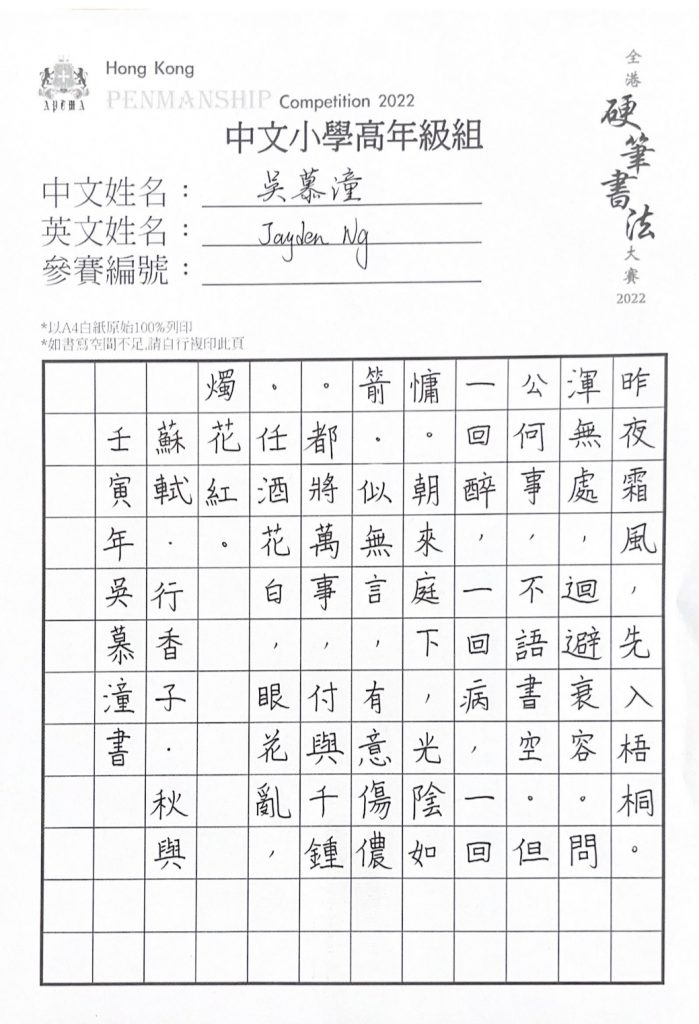 APEMA
Hong Kong
PENMANSHIP Competition 2022
中文小學高年級組
全港
硬筆書法
大賽
2022
中文姓名：吳慕潼
英文姓名：Jayden Ng
參賽編號：
*以A4白紙原始100%列印
*如書寫空間不足,請自行複印此頁
昨夜霜風，先入梧桐。
渾無處，迴避衰容。問
公何事，不語書空。但
一回醉，一回病，一回
慵。朝來庭下，光陰如
箭．似無言，有意傷儂
。都將萬事，付與千鍾
。任酒花白，眼花亂，
燭花紅。
蘇軾．行香子．秋與
壬寅年吳慕潼書